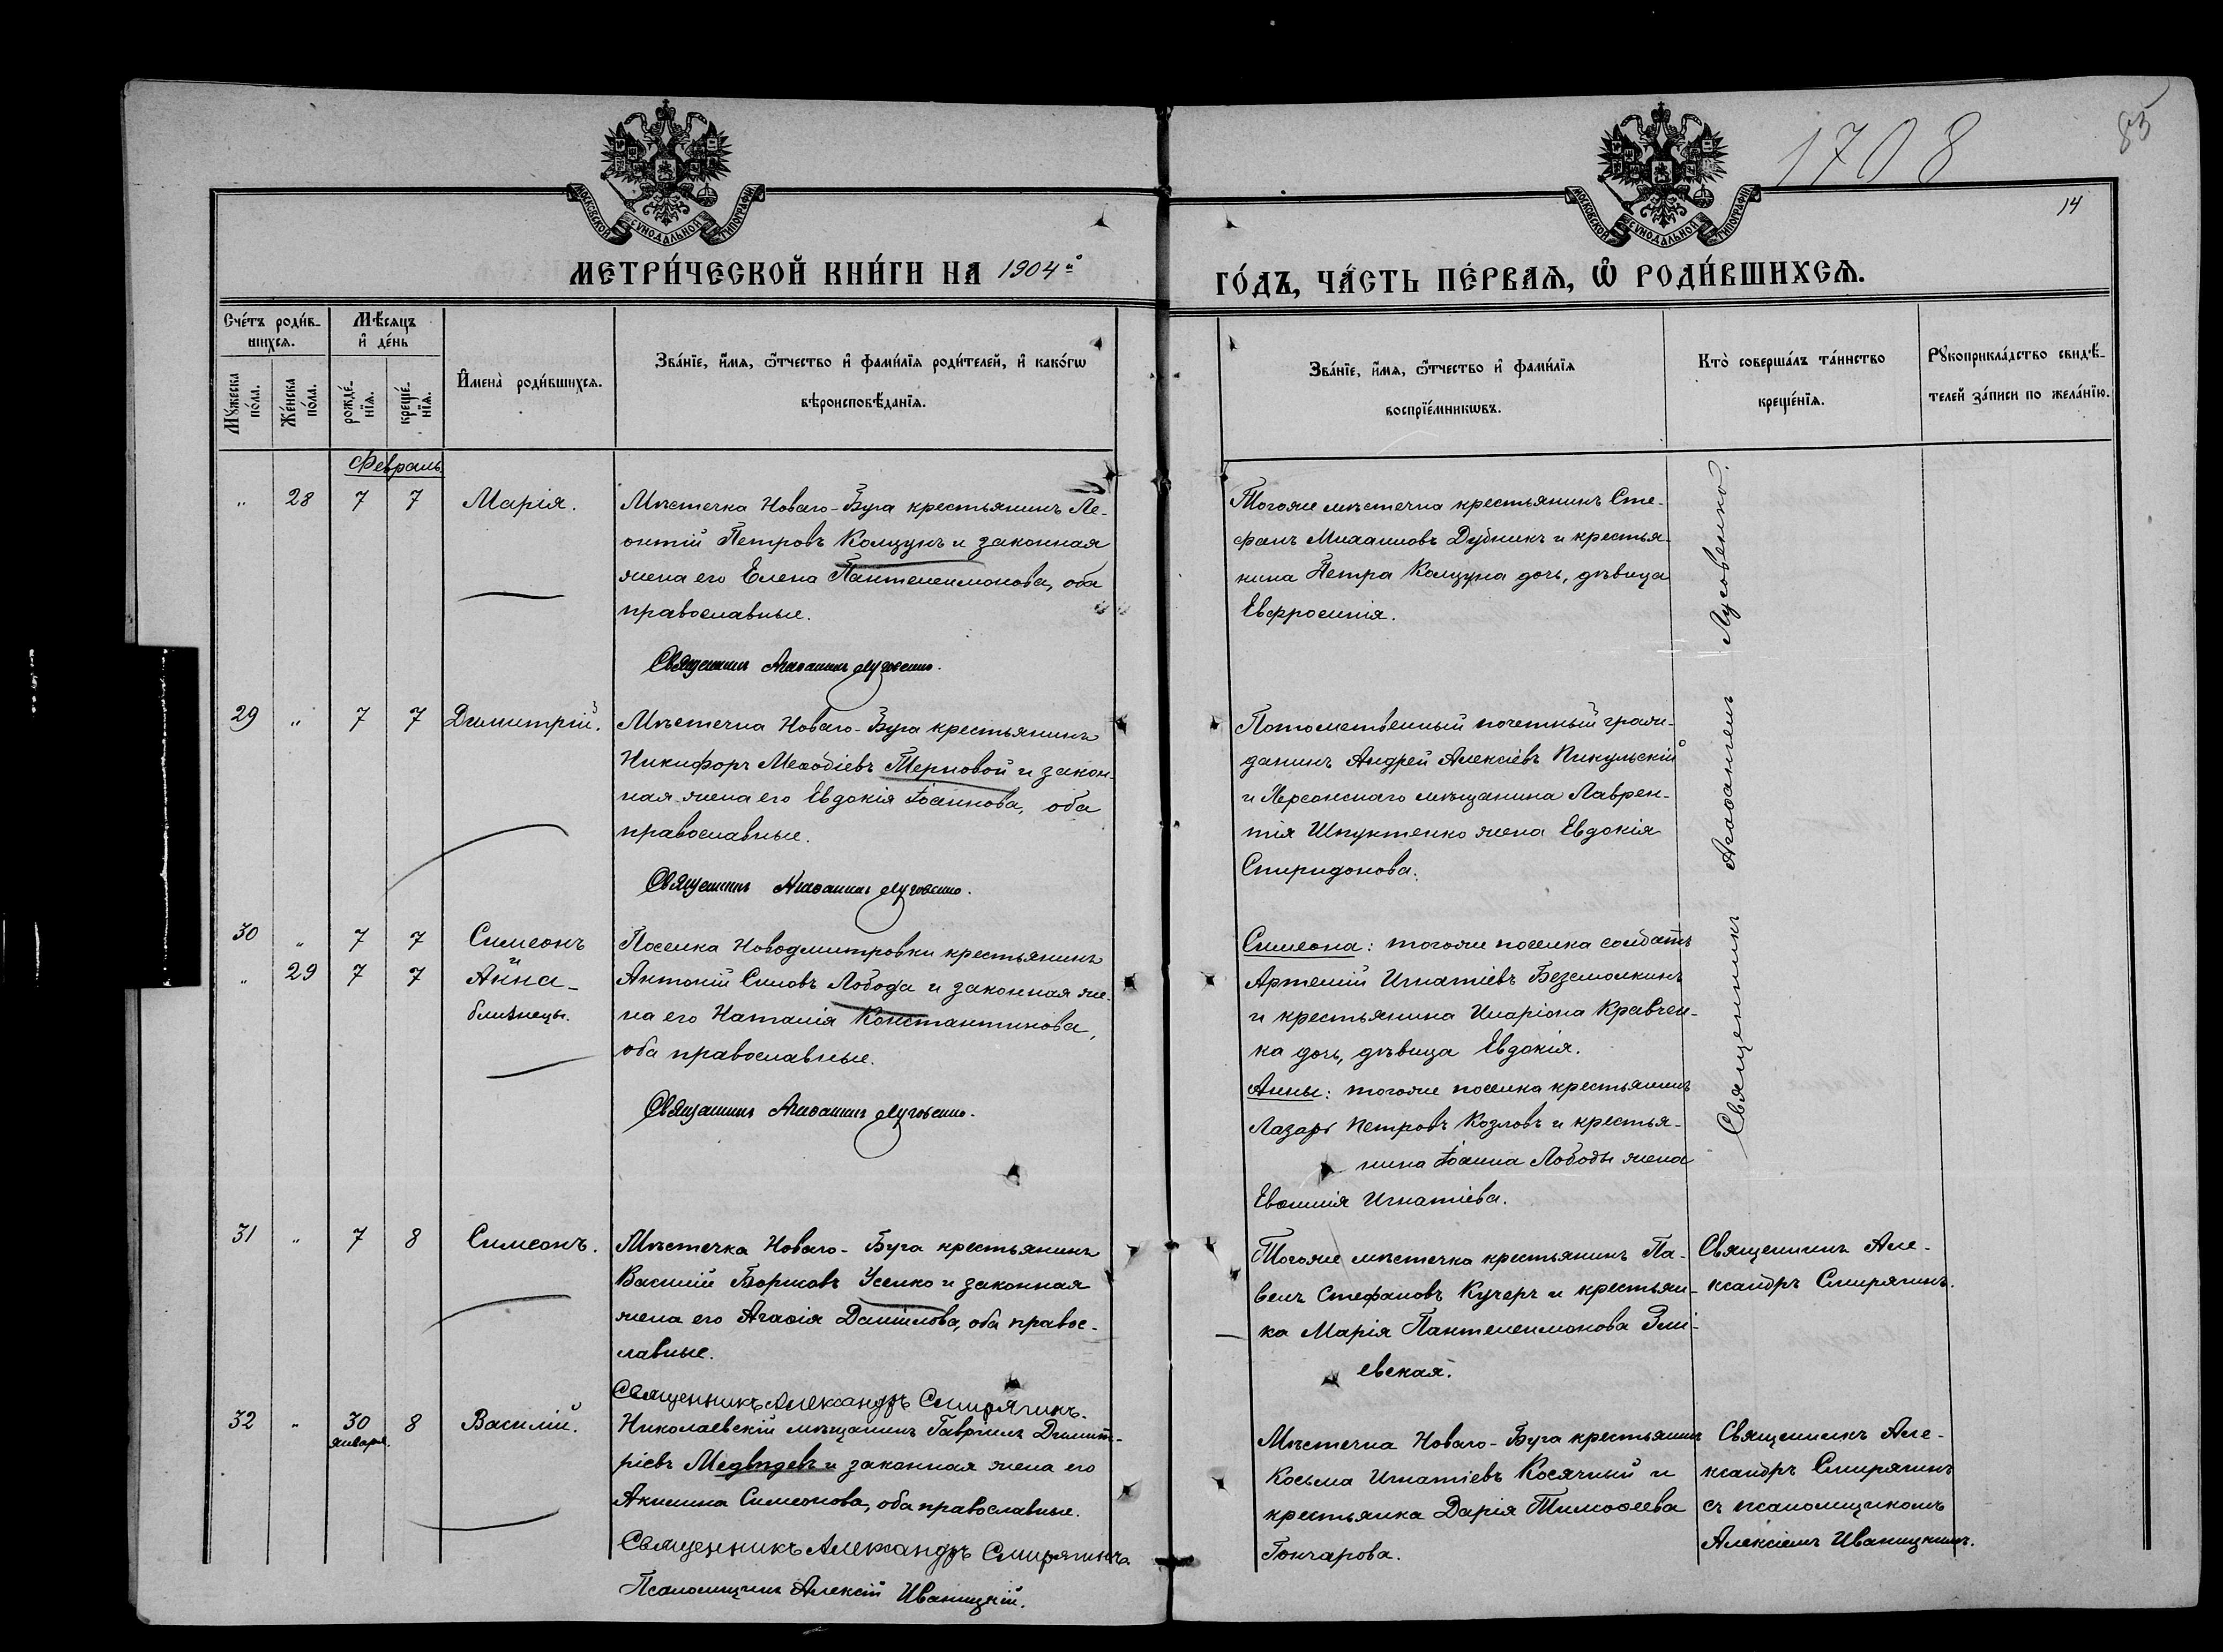 1708
83
14
МОСКОВСКОЙ СѴНОДАЛЬНОЙ ТИПОГРАФІИ
МОСКОВСКОЙ СѴНОДАЛЬНОЙ ТИПОГРАФІИ
МЕТРИ́ЧЕСКОЙ КНИ́ГИ НА 1904й
ГО́ДЪ, ЧА́СТЬ ПЕ́РВАѦ, Ѡ҆ РОДИ́ВШИХСѦ.
Сче́тъ роди́в-
шихсѧ.
Мѣ́сѧцъ
и҆ де́нь
Мꙋ́жеска
по́ла.
Же́нска
по́ла.
рожде́-
нїѧ.
креще́-
нїѧ.
И҆мена̀ роди́вшихсѧ.
Зва́нїе, и҆́мѧ, ѻ҆́тчество и҆ фами́лїѧ роди́телей, и҆ како́гѡ
вѣроисповѣ́данїѧ.
Зва́нїе, и҆́мѧ, ѻ҆́тчество и҆ фами́лїѧ
воспрїе́мникѡвъ.
Кто̀ соверша́лъ та́инство
креще́нїѧ.
Рꙋкоприкла́дство свидѣ́-
телей за́писи по жела́нїю.
Февраль
" 28 7 7 Марія.
Мѣстечка Новаго-Буга крестьянинъ Ле-
онтій Петровъ Колцунъ и законная
жена его Елена Пантелеимонова, оба
православные.
Священникъ Агаѳангелъ Луговенко.
Тогоже мѣстечка крестьянинъ Сте-
фанъ Михаиловъ Дубникъ и крестья-
нина Петра Колцуна дочь, дѣвица
Евфросинія.
Священникъ Агаѳангелъ Луговенко.
29 " 7 7 Димитрій.
Мѣстечка Новаго-Буга крестьянинъ
Никифоръ Меѳодіевъ Терновой и закон-
ная жена его Евдокія Іоаннова, оба
православные.
Священникъ Агаѳангелъ Луговенко.
Потомственный почетный граж-
данинъ Андрей Алексіевъ Пикульскій
и Херсонскаго мѣщанина Лаврен-
тія Шпунтенко жена Евдокія
Спиридонова.
30 " 7 7 Симеонъ
" 29 7 7 и Анна-
близнецы.
Поселка Новодмитровки крестьянинъ
Антоній Силовъ Лобода и законная же-
на его Наталія Константинова,
оба православные.
Священникъ Агаѳангелъ Луговенко.
Симеона: тогоже поселка солдатъ
Артемій Игнатіевъ Безсмолкинъ
и крестьянина Иларіона Кравчен-
ка дочь, дѣвица Евдокія.
Анны: тогоже поселка крестьянинъ
Лазарь Петровъ Козловъ и крестья-
нина Іоанна Лободы жена
Евѳимія Игнатіева.
31 " 7 8 Симеонъ.
Мѣстечка Новаго-Буга крестьянинъ
Василій Борисовъ Усенко и законная
жена его Агаѳія Даніилова, оба правос-
лавные.
Священникъ Александръ Смирягинъ.
Тогоже мѣстечка крестьянинъ Па-
велъ Стефановъ Кучеръ и крестьян-
ка Марія Пантелеимонова Змі-
евская.
Священникъ Але-
ксандръ Смирягинъ.
32 " 30 8 Василій.
января.
Николаевскій мѣщанинъ Гавріилъ Димит-
ріевъ Медвѣдевъ и законная жена его
Акилина Симеонова, оба православные.
Священникъ Александръ Смирягинъ
Псаломщикъ Алексій Иваницкій.
Мѣстечка Новаго-Буга крестьянинъ
Косьма Игнатіевъ Косячный и
крестьянка Дарія Тимоѳеева
Гончарова.
Священникъ Але-
ксандръ Смирягинъ
съ псаломщикомъ
Алексіемъ Иваницкимъ.